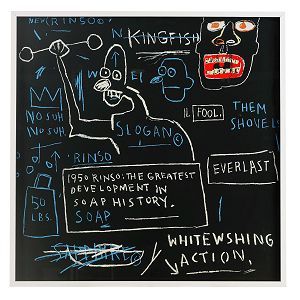 NEW RINSO©
KINGFISH
NO SUH
NO SUH
SLOGAN©
IL FOOL.
THEM
SHOVELS
RINSO
50
LBS.
1950 RINSO: THE GREATEST
DEVELOPMENT IN
SOAP HISTORY.
SOAP
EVERLAST
WHITEWSHING
ACTION.